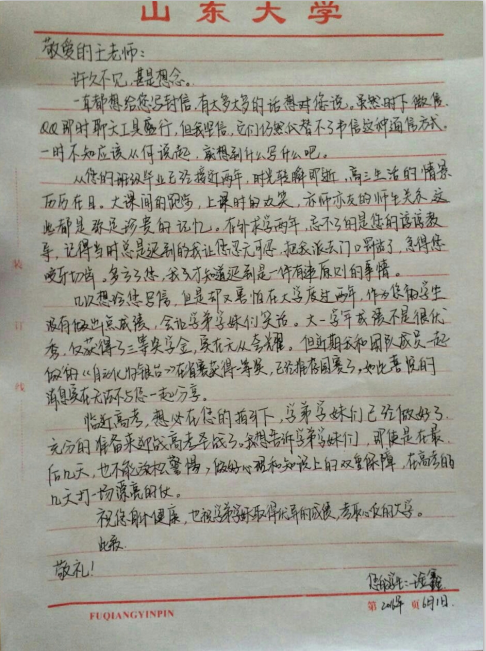 山东大学
敬爱的王老师：
许久不见，甚是想念。
一直都想给您写封信，有太多太多的话想对您说。虽然时下微信
QQ即时聊天工具盛行，但我坚信，它们仍然代替不了书信这种通信方式。
一时不知应该从何说起，就想到什么写什么吧。
从您的班级毕业已经接近两年，时光转瞬即逝，高三生活的情景
历历在目。大课间的跑步，上课时的欢笑，亦师亦友的师生关系 这
些都是弥足珍贵的记忆。在外求学两年，忘不了的是您的谆谆教
导，记得当时总是迟到的我让您忍无可忍，把我派去门口罚站了，急得您
咬牙切齿。多亏了您，我才知道迟到是一件有违原则的事情。
几次想给您写信，但是却又害怕在大学度过两年，作为您的学生
没有做出点成绩，会让学弟学妹们笑话。大一学年成绩不是很优
秀，仅获得了三等奖学金，实在无从会耀。但近期我和团队成员一起
做的《自动化》在省赛获得一等奖，已经推荐国赛了，如此喜悦的
消息实在无法不与您一起分享。
临近高考，想必在您的指引下，学弟学妹们已经做好了
充分的准备来迎战高考圣战了。我想告诉学弟学妹们，即使是在最
后几天，也不能放松警惕，做好心理和知识上的双重保障，在高考的
几天打一场漂亮的仗。
祝您身体健康，也祝学弟学妹取得优异的成绩，考取心仪的大学。
此致
敬礼！
您的学生：
第2016年 页6月1日
FUQIANGYINPIN
装
订
线